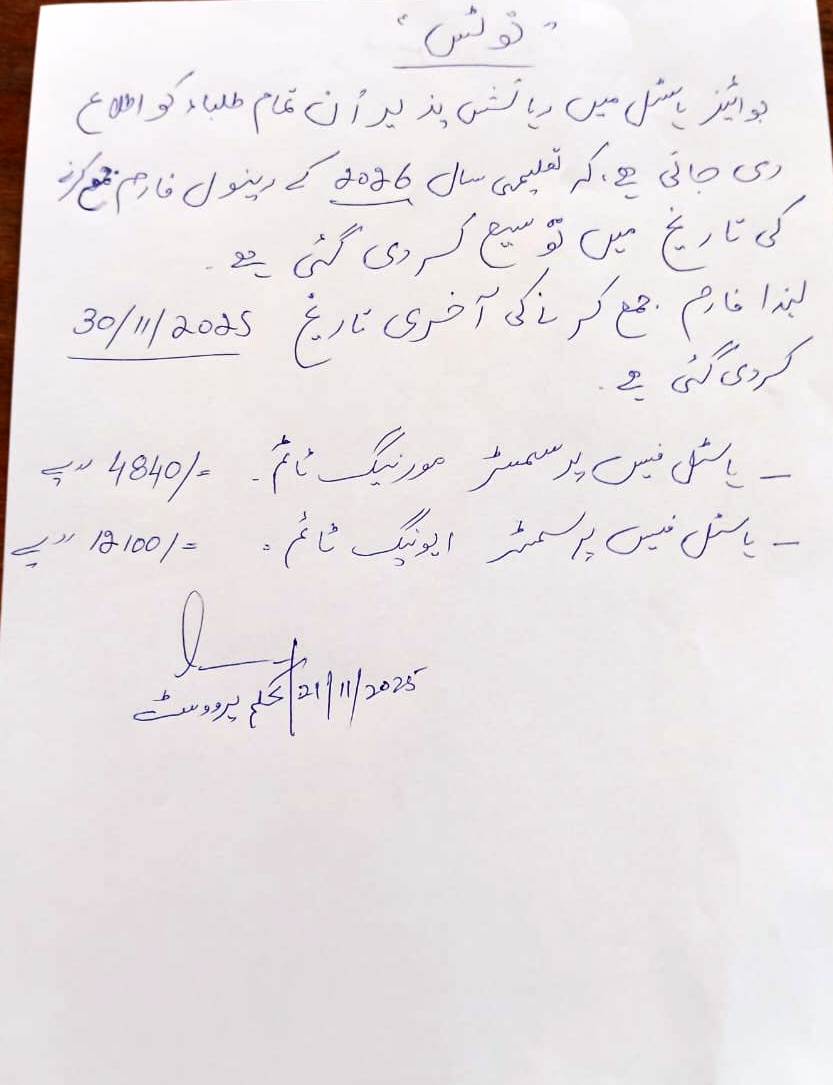 "نوٹس"
بوائیز ہاسٹل میں رہائش پذیر اُن تمام طلباء کو اطلاع
دی جاتی ہے، کہ تعلیمی سال 2026 کے رینول فارم جمع کرنے
کی تاریخ میں توسیع کر دی گئی ہے۔
لہذا فارم جمع کرنے کی آخری تاریخ 30/11/2025
کردی گئی ہے۔
– ہاسٹل فیس پر سمسٹر مورنیگ ٹائم۔ =/4840 روپے
– ہاسٹل فیس پر سمسٹر ایونیگ ٹائم۔ =/12100 روپے
21/11/2025
بحکم پرووسٹ